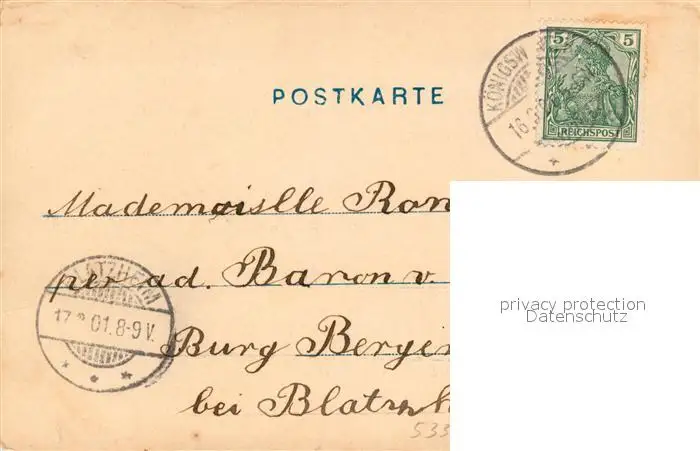 POSTKARTE
5 5
REICHSPOST
KÖNIGSW
16.
Mademoislle Ron
per ad. Baron v.
Burg Berge
bei Blatzh
BLATZHEIM
01.8-9V.
533
privacy protection
Datenschutz